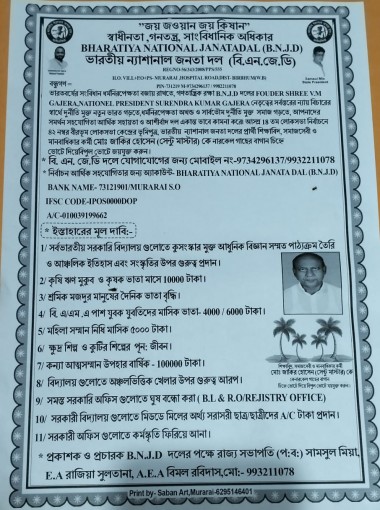 "জয় জওয়ান জয় কিষান"
স্বাধীনতা, গনতন্ত্র, সাংবিধানিক অধিকার
BHARATIYA NATIONAL JANATADAL (B.N.J.D)
ভারতীয় ন্যাশানাল জনতা দল (বি.এন.জে.ডি)
REGNO-56/343/2008/PPS/333
H.O. VILL+P.O+PS- MURARAI HOSPITAL ROAD,DIST- BIRBHUM(W.B)
PIN-731219 M-9734296137 / 9932211078
বন্ধুগণ-
ভারতবর্ষের সাংবিধান ধর্মনিরপেক্ষতা বজায় রাখতে, গণতান্ত্রিক রক্ষা B.N.J.D দলের FOUDER SHREE V.M
GAJERA,NATIONEL PRESIDENT SURENDRA KUMAR GAJERA নেতৃত্বের সর্বস্তরে ন্যায় বিচারের
স্বার্থে দুর্নীতি মুক্ত নতুন ভারত গড়তে,ধর্মনিরপেক্ষতা অখন্ড ও সার্বভৌম দুর্নীতি মুক্ত সমাজ গড়তে, আপনাদের
সমর্থন সহযোগিতা আর্থিক সহায়তা ও আশীর্বাদ দল একান্ত ভাবে কামনা করে আসন্ন ১৪ তম লোকসভা নির্বাচনে
৪২ নম্বর বীরভূম লোকসভা কেন্দ্রে ভারতীয় ন্যাশানাল জনতে দলের প্রার্থী শিক্ষাবিদ, সমাজসেবী ও
মানবাধিকার কর্মী মোঃ জাকির হোসেন (সেন্টু মাস্টার) কে নারকেল গাছের বাগান চিহ্নে
ভোট দিয়ে বিপুল ভোটে জয়যুক্ত করুন।
* বি. এন. জে.ডি দলে যোগাযোগের জন্য মোবাইল নং-9734296137/9932211078
* নির্বাচন আর্থিক সহযোগিতার জন্য অ্যাকাউন্ট- BHARATIYA NATIONAL JANATA DAL (B.N.J.D)
BANK NAME- 73121901/MURARAI S.O
IFSC CODE-IPOS0000DOP
A/C-010039199662
* ইস্তাহারের মূল দাবি:-
1/ সর্বভারতীয় সরকারি বিদ্যালয় গুলোতে কুসংস্কার মুক্ত আধুনিক বিজ্ঞান সম্মত পাঠ্যক্রম তৈরি
ও আঞ্চলিক ইতিহাস এবং সংস্কৃতির উপর গুরুত্ব প্রদান।
2/ কৃষি ঋণ মুকুব ও কৃষক ভাতা মাসে 10000 টাকা।
3/ শ্রমিক মজদুর মানুষের দৈনিক ভাতা বৃদ্ধি।
4/ বি. এ/এম .এ পাশ যুবক যুবতিদের মাসিক ভাতা- 4000 / 6000 টাকা।
5/ মহিলা সম্মান নিধি মাসিক ৫০০০ টাকা।
6/ ক্ষুদ্র শিল্প ও কুটির শিল্পের পূন: জীবন।
7/ কন্যা আত্মসম্মান উপহার বার্ষিক - 100000 টাকা।
8/ বিদ্যালয় গুলোতে অঞ্চলভিত্তিক খেলার উপর গুরুত্ব আরপ।
9/ সমস্ত সরকারি অফিস গুলোতে ঘুষ বন্ধো করা। (B.L & R.O/REJISTRY OFFICE)
10/ সরকারী বিদ্যালয় গুলোতে মিডডে মিলের অর্থ্য সরাসরী ছাত্র/ছাত্রীদের A/C টাকা প্রদান।
11/ সরকারী অফিস গুলোতে কর্মস্কৃতি ফিরিয়ে আনা।
মোঃ জাকির হোসেন(সেন্টু মাস্টার) কে
* প্রকাশক ও প্রচারক B.N.J.D দলের পক্ষে রাজ্য সভাপতি (প:ব:) সামসুল মিয়া,
E.A রাজিয়া সুলতানা, A.E.A বিমল রবিদাস,মো:- 993211078
Print by- Saban Art,Murarai-6295146401